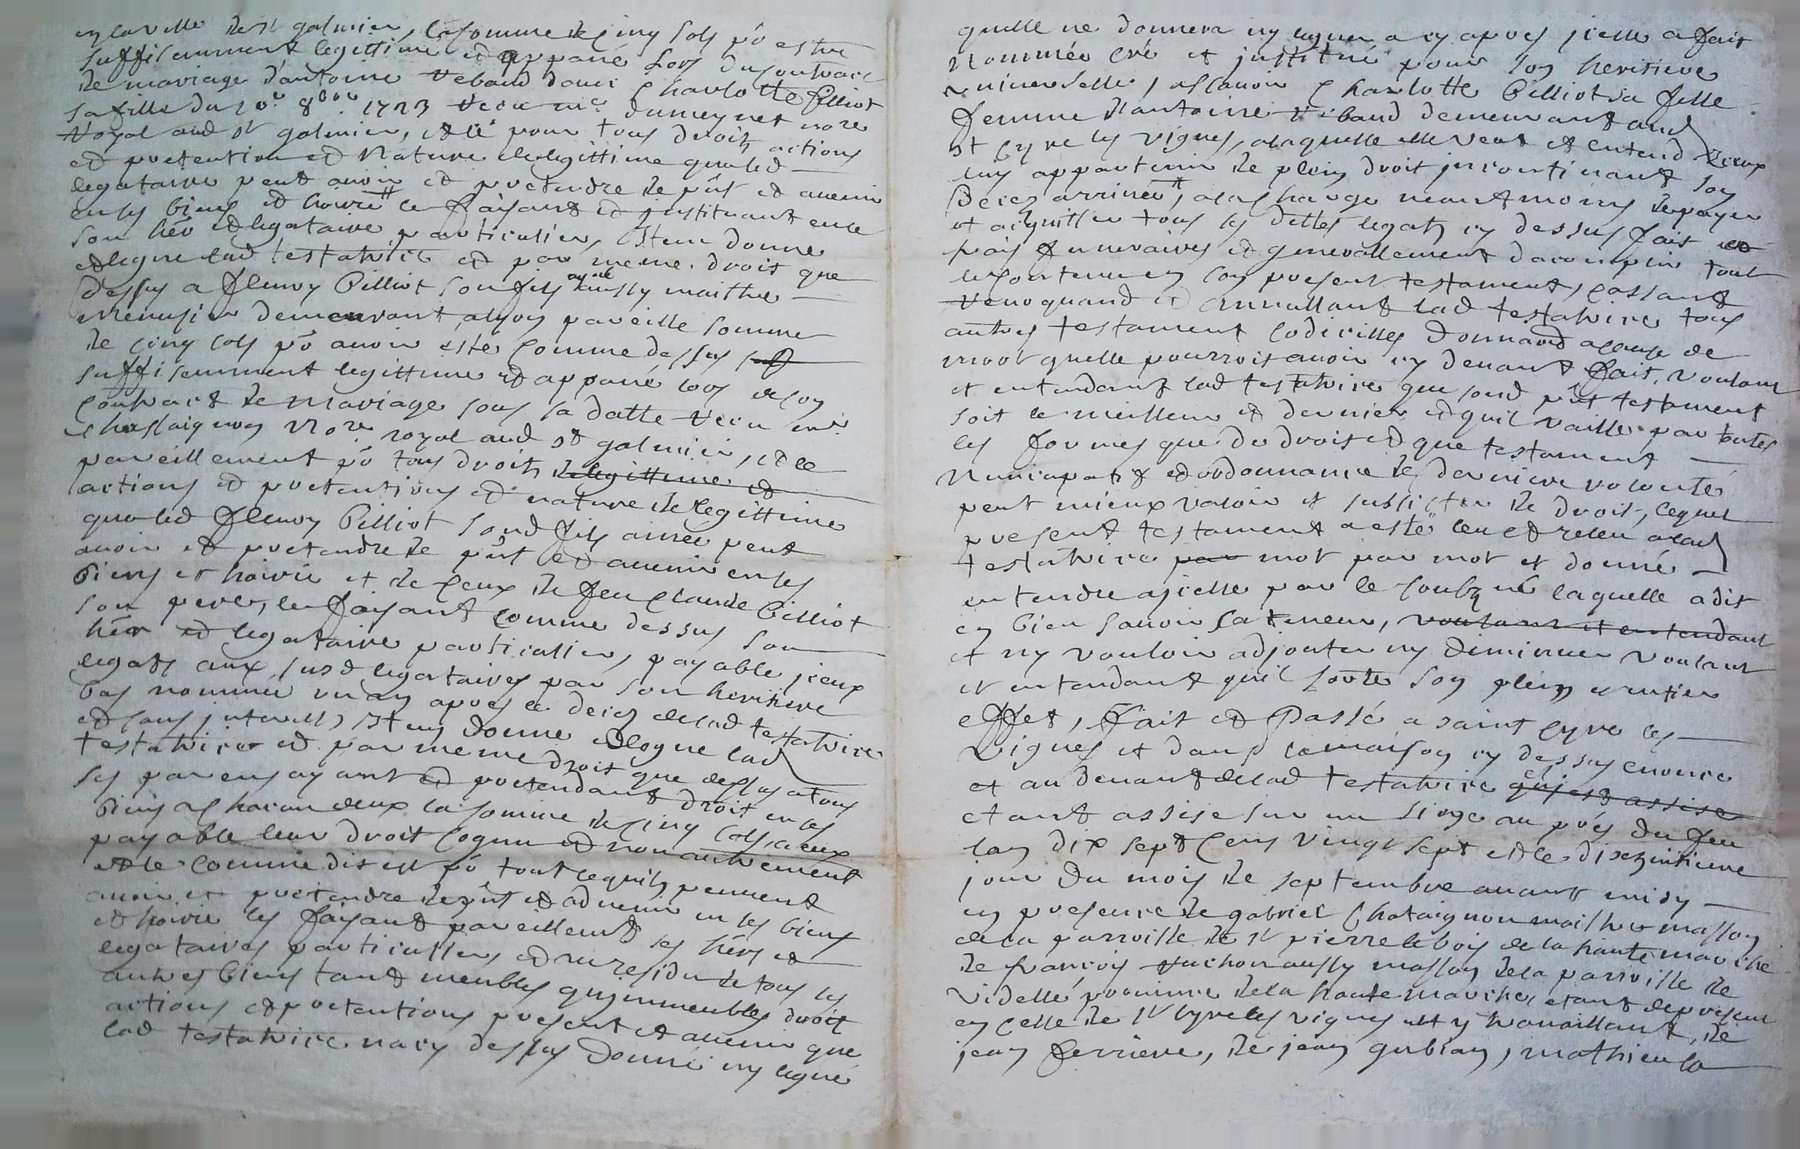 en la ville de st galmier, la somme de cinq sols po estre
suffisemment legittimé et appané lors du contract
de mariage d'antoine Rebaud dauec Charlotte Pilliot
sa fille du 20e 8bre 1723 Receu me Dumeynet nore
Royal aud st galmier, et ce pour tous droits actions
et pretention et Nature de legittime que led
legataire peut avoir et pretendre de pnt et auenir
en ses biens et hoirie le faisant et instituant en ce
son hér et legataire particulier, Item donne
et legue lad testatrice et par meme droit que
dessus a fleury Pilliot son fils ayné aussy maithre
Menusier demeurant a lyon pareille somme
de cinq sols po avoir esté comme dessus suff
suffisemment legittimé et appané lors de son
contract de mariage sous sa datte Receu me
Chastaignon Nore royal aud st galmier, et ce
pareillement po tous droits de legittime et
actions et pretentions et nature de legittime
que led fleury Pilliot sond fils ainée peut
avoir et pretendre de pnt et auenir en ses
biens et hoirie et de ceux de feu Claude Pilliot
son pere, le faisant comme dessus son
hér et legataire particulier, payable iceux
legats aux susd legataires par son heritiere
bas nommée un an apres le deces de lad testatrice
et sans interests, Item donne et legue lad
testatrice et par meme droit que dessus a tous
ses parens ayant et pretendant droit en ses
biens a chacun deux la somme de cinq sols a ceux
payable leur droit cognu et non autrement
et ce comme dit est po tout ce quils peuvent
avoir et pretendre de pnt et aduenir en ses biens
et hoirie les faisant pareillemt ses hérs et
legataires particuliers et au residu de tous ses
autres biens tant meubles qu immeubles droit
actions et pretentions present et auenir que
lad testatrice nacy dessus donné ny legué
quelle ne donnera ny leguera cy apres icelle a fait
Nommée créé et jnstitué pour son heritiere
universelle, ascauoir Charlotte Pilliot sa fille
femme d'antoine Rebaud demeurant aud
st Cyre les vignes, a laquelle elle veut et entend iceux
luy appartenir de plein droit jncontinant son
Deces arrivée, a la charge neantmoins de payer
et acquitter tous les dettes legats cy dessus fait et
frais funeraires et generallement dacomplir tout
le contenu en son present testament, cassant
Revoquand et annullant lad testatrice tous
autres testament codicilles donnaōn a cause de
mort quelle pourroit avoir cy deuant fait, voulant
et entendant lad testatrice que sond pnt testament
soit le meilleur et dernier et quil vaille par toutes
les formes que de droit et que testament
Nuncupatif et ordonnance de derniere volonté
peut mieux valoir et subsister de droit, lequel
present testament a esté leu et releu a lad
testatrice par mot par mot et donné
entendre a jcelle par le soubzné laquelle a dit
en bien sauoir sa teneur, voulant et entendant
et ny vouloir adjouter ny diminuer voulant
et entendant quil sorte son plein et entier
effet, Fait et Passé a saint Cyre les
vignes et dans la maison cy dessus enonce
et au deuant de lad testatrice qui est assise
etant assise sur un siege au pres du feu
lan dix sept cens vingt sept et le dixhuitieme
jour du mois de septembre avant midy
en presence de gabriel Chataignon maithre masson
de la parroisse de st pierre le bois de la haute marche
de françois Vachon aussy masson de la parroisse de
Videlle province de la haute marche, etant de present
en celle de st Cyre les vignes et y travaillant, de
jean ferriere, de jean gubian, mathieu la